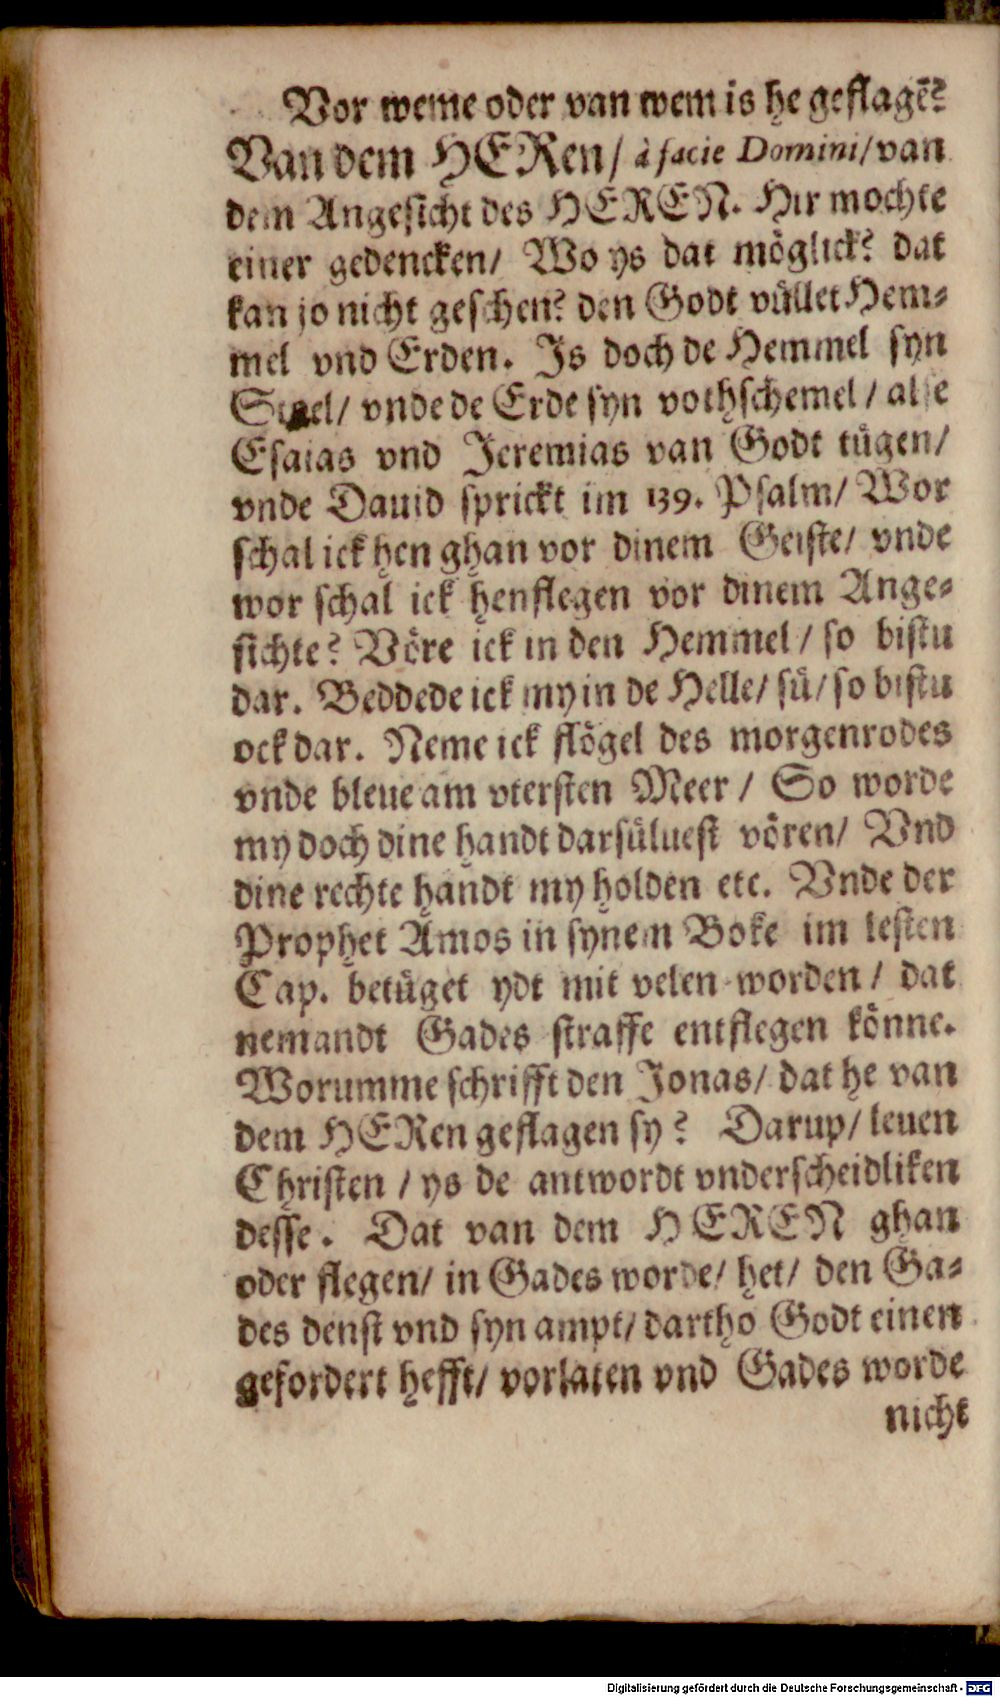 Vor weme oder van wem is he geflagē?
Van dem HERen/ à facie Domini/ van
dem Angesicht des HEREN. Hir mochte
einer gedencken/ Wo ys dat möglick? dat
kan jo nicht geschen? den Godt vüllet Hem-
mel vnd Erden. Is doch de Hemmel syn
Stoel/ vnde de Erde syn vothschemel/ alse
Esaias vnd Jeremias van Godt tügen/
vnde Dauid sprickt im 139. Psalm/ Wor
schal ick hen ghan vor dinem Geiste/ vnde
wor schal ick henflegen vor dinem Ange-
sichte? Vöre ick in den Hemmel/ so bistu
dar. Beddede ick my in de Helle/ sü/ so bistu
ock dar. Neme ick flögel des morgenrodes
vnde bleue am vtersten Meer/ So worde
my doch dine handt darsüluest vören/ Vnd
dine rechte handt my holden etc. Vnde der
Prophet Amos in synem Boke im lesten
Cap. betüget ydt mit velen worden/ dat
nemandt Gades straffe entflegen könne.
Worumme schrifft den Jonas/ dat he van
dem HERen geflagen sy? Darup/ leuen
Christen/ ys de antwordt vnderscheidliken
desse. Dat van dem HEREN ghan
oder flegen/ in Gades worde/ het/ den Ga-
des denst vnd syn ampt/ dartho Godt einen
gefordert hefft/ vorlaten vnd Gades worde
nicht
Digitalisierung gefördert durch die Deutsche Forschungsgemeinschaft - DFG